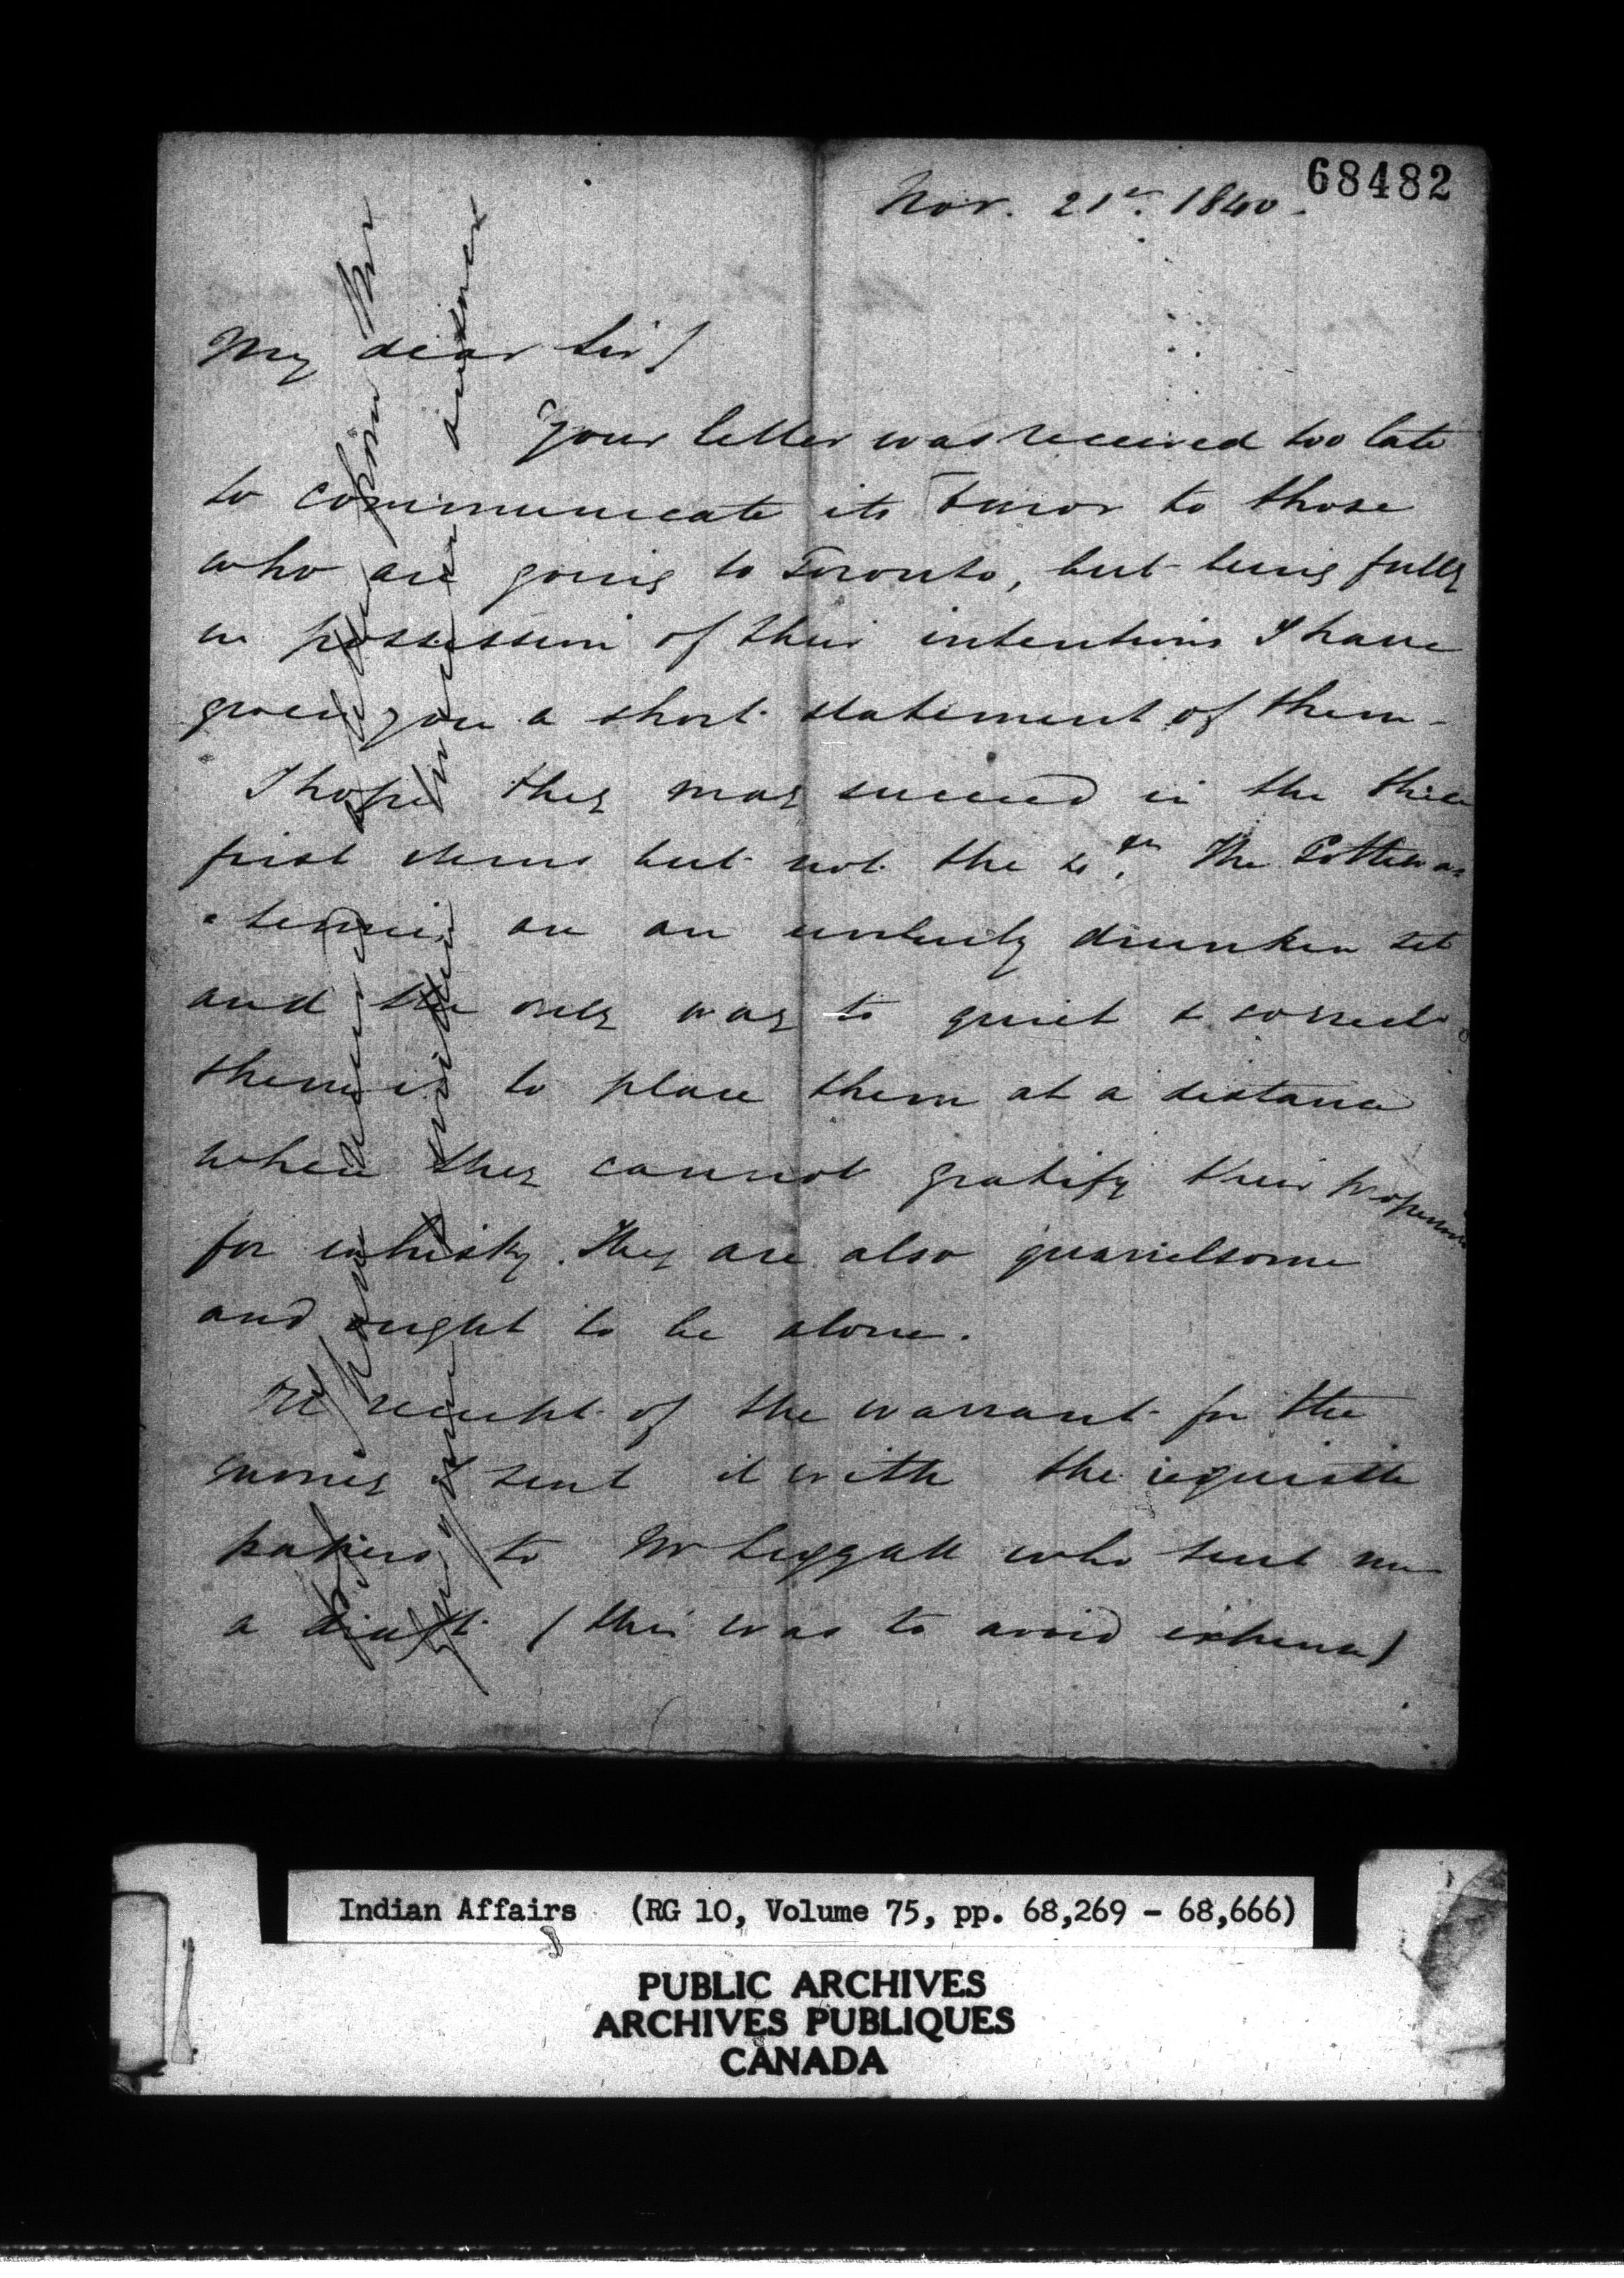 68482
Nov. 21st. 1840.
My dear Sir/
Your letter was received too late
to communicate its Tenor to those
who are going to Toronto, but being fully
in possession of their intentions I have
given you a short statement of them -
I hope they may succeed in the three
first items but not the 4th. The Pottewa=
=temies are an unruly drunken set
and the only way to quiet & correct
them is to place them at a distance
where they cannot gratify their propensity
for whisky. They are also quarrelsome
and ought to be alone.
receipt of the warrant for the
money I sent it with the requisite
papers to Mr Leggatt who sent me
a draft (this was to avoid expense)
have received a letter from Mr
written
Indian Affairs (RG 10, Volume 75, pp. 68,269 - 68,666)
PUBLIC ARCHIVES
ARCHIVES PUBLIQUES
CANADA